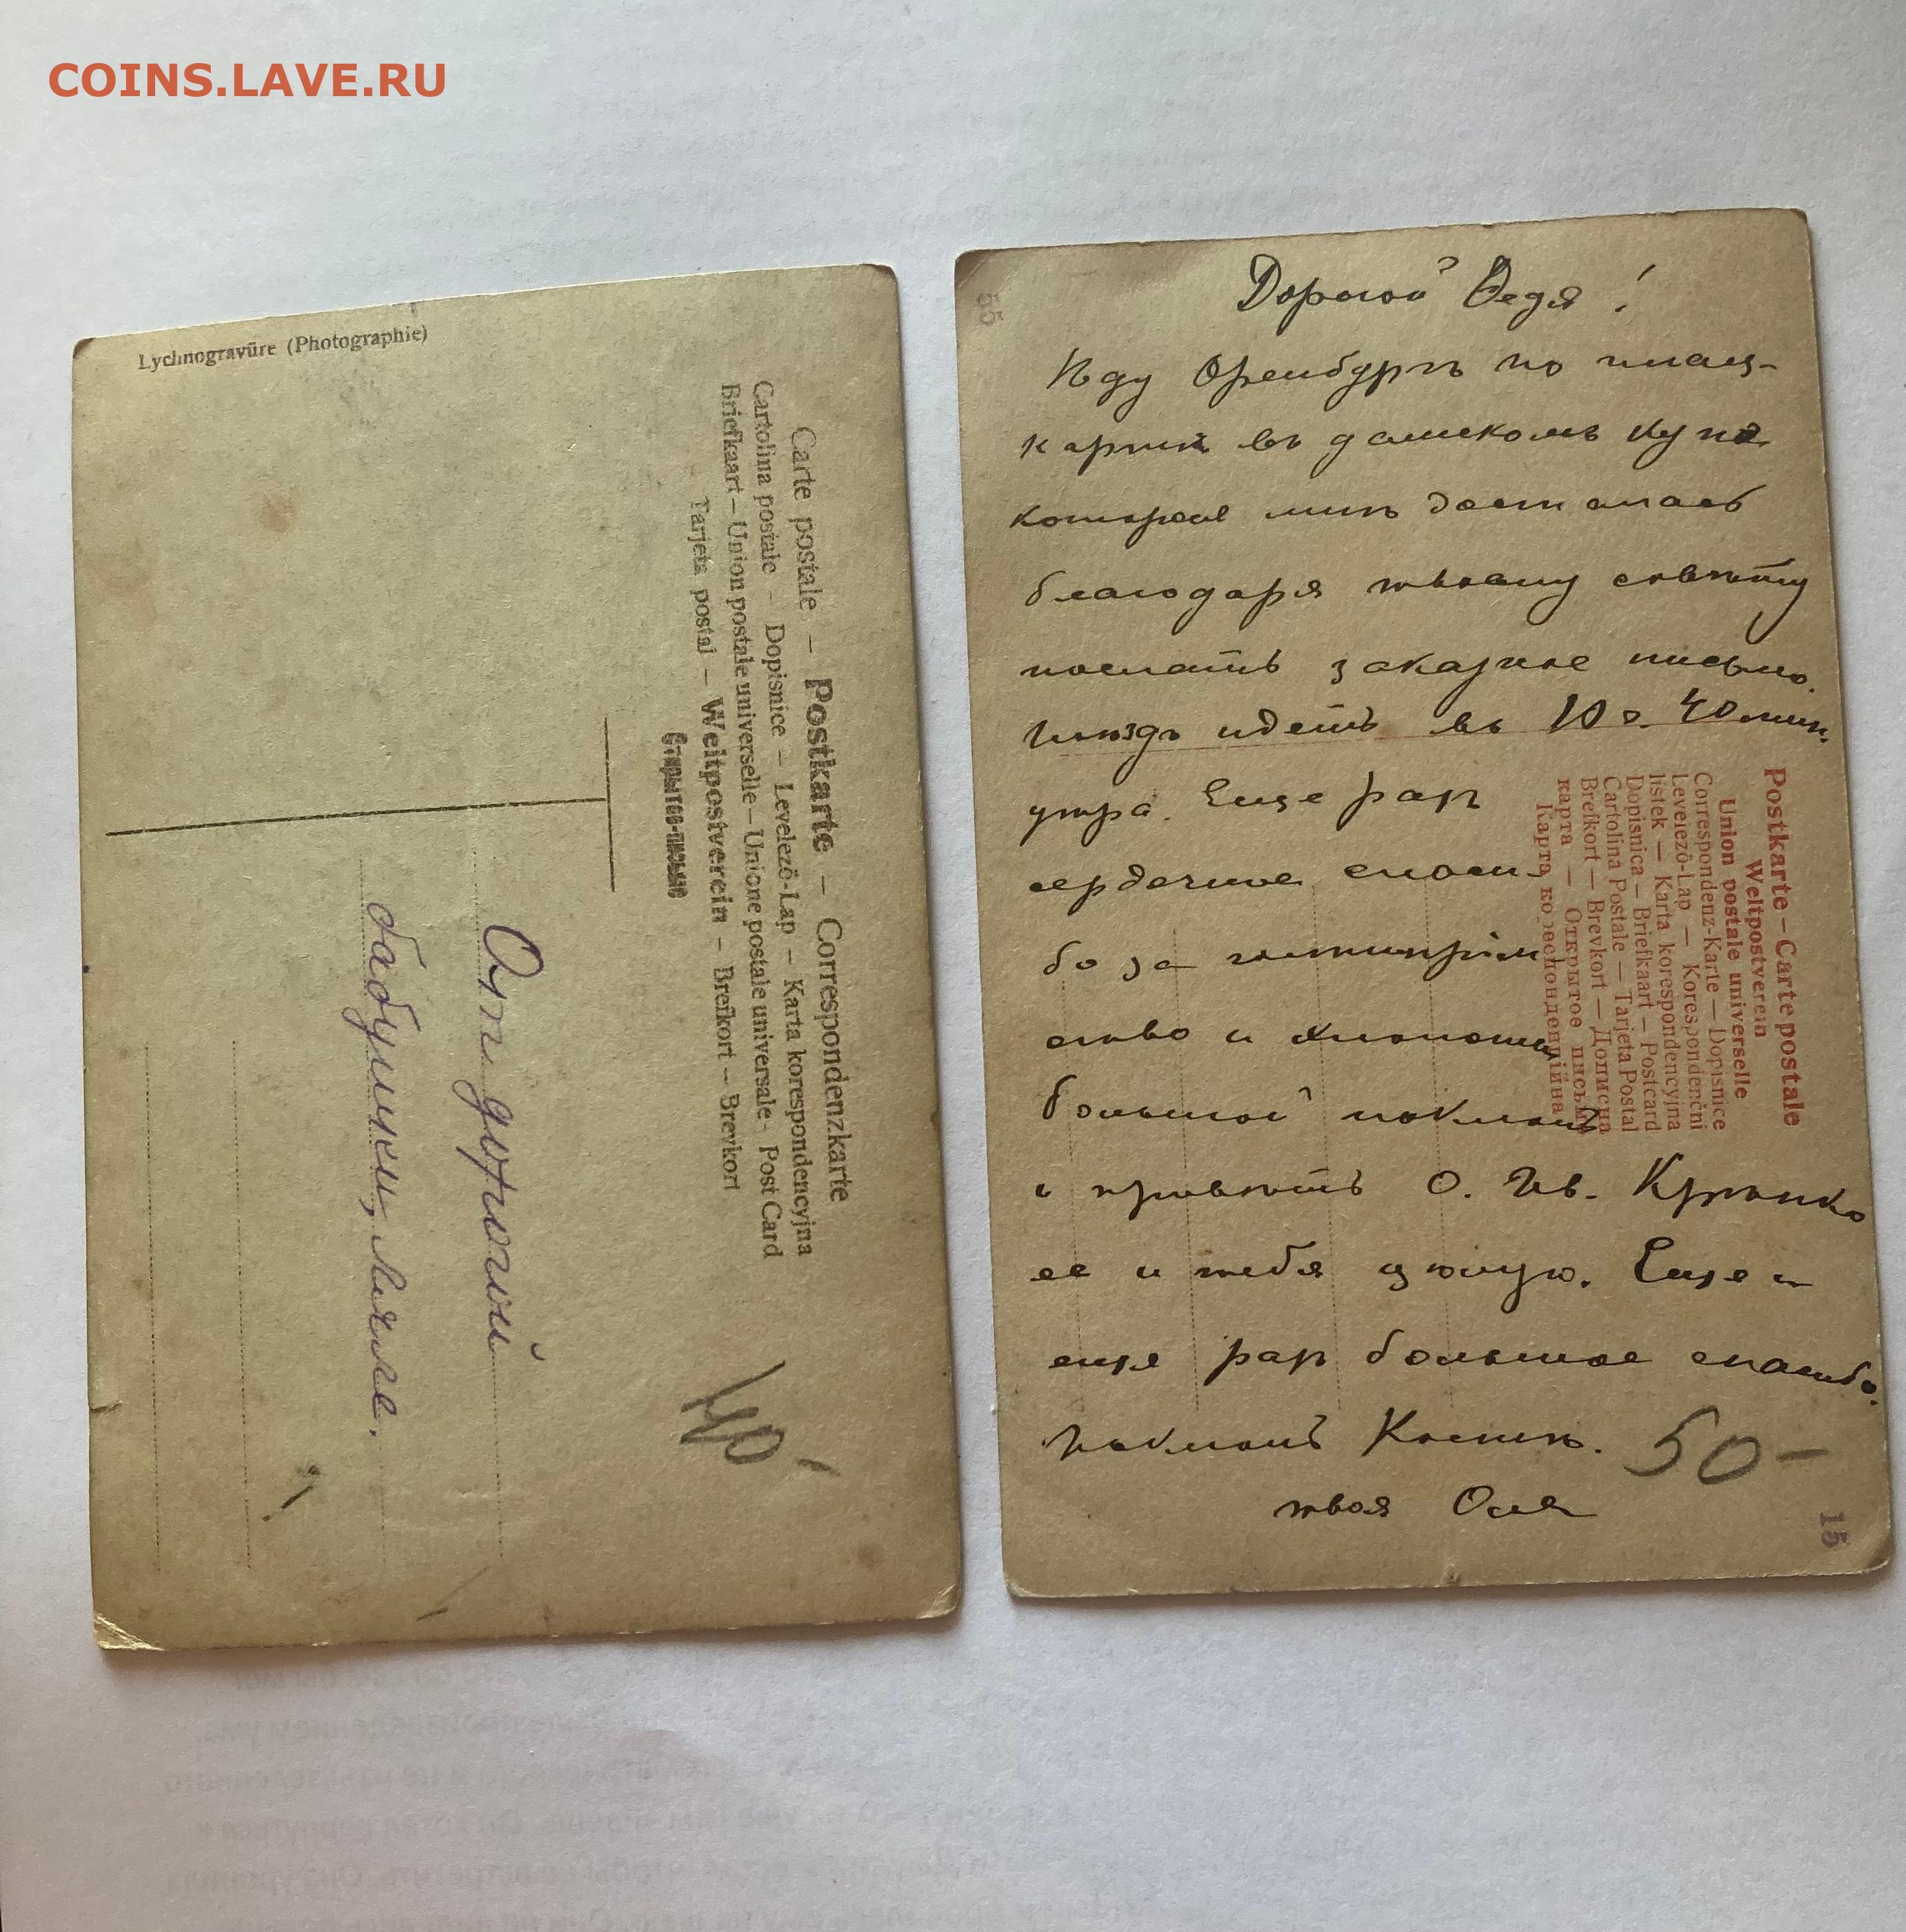 COINS.LAVE.RU
Lychnogravüre (Photographie)
Carte postale – Postkarte – Correspondenzkarte
Cartolina postale – Dopisnice – Levelező-Lap – Karta korespondencyjna
Briefkaart – Union postale universelle – Unione postale universale - Post Card
Tarjeta postal – Weltpostverein – Brefkort – Brevkort
Открытое-письмо
От дорогой
бабушки, Ляле.
40-
55
Дорогой Ѳедя!
Ѣду Оренбургъ по плац-
картѣ въ дамскомъ купэ
которое мнѣ досталось
благодаря твоему совѣту
послать заказное письмо.
Поѣздъ идетъ въ 10 ч. 40 мин.
утра. Еще раз
сердечное спаси-
бо за гостепріим-
ство и хлопоты
большой поклонъ
и привѣтъ О. Ив. Крѣпко
ее и тебя цѣлую. Еще и
еще раз большое спасибо.
Поклонъ Костѣ.
твоя Оля
50-
15
Postkarte – Carte postale
Weltpostverein
Union postale universelle
Correspondenz-Karte — Dopisnice
Levelező-Lap — Korespondenční
listek — Karta korespondencyjna
Dopisnica – Briefkaart – Postcard
Cartolina Postale — Tarjeta Postal
Brefkort — Brevkort — Дописна
карта — Открытое письмо
Карта кореспонденційна